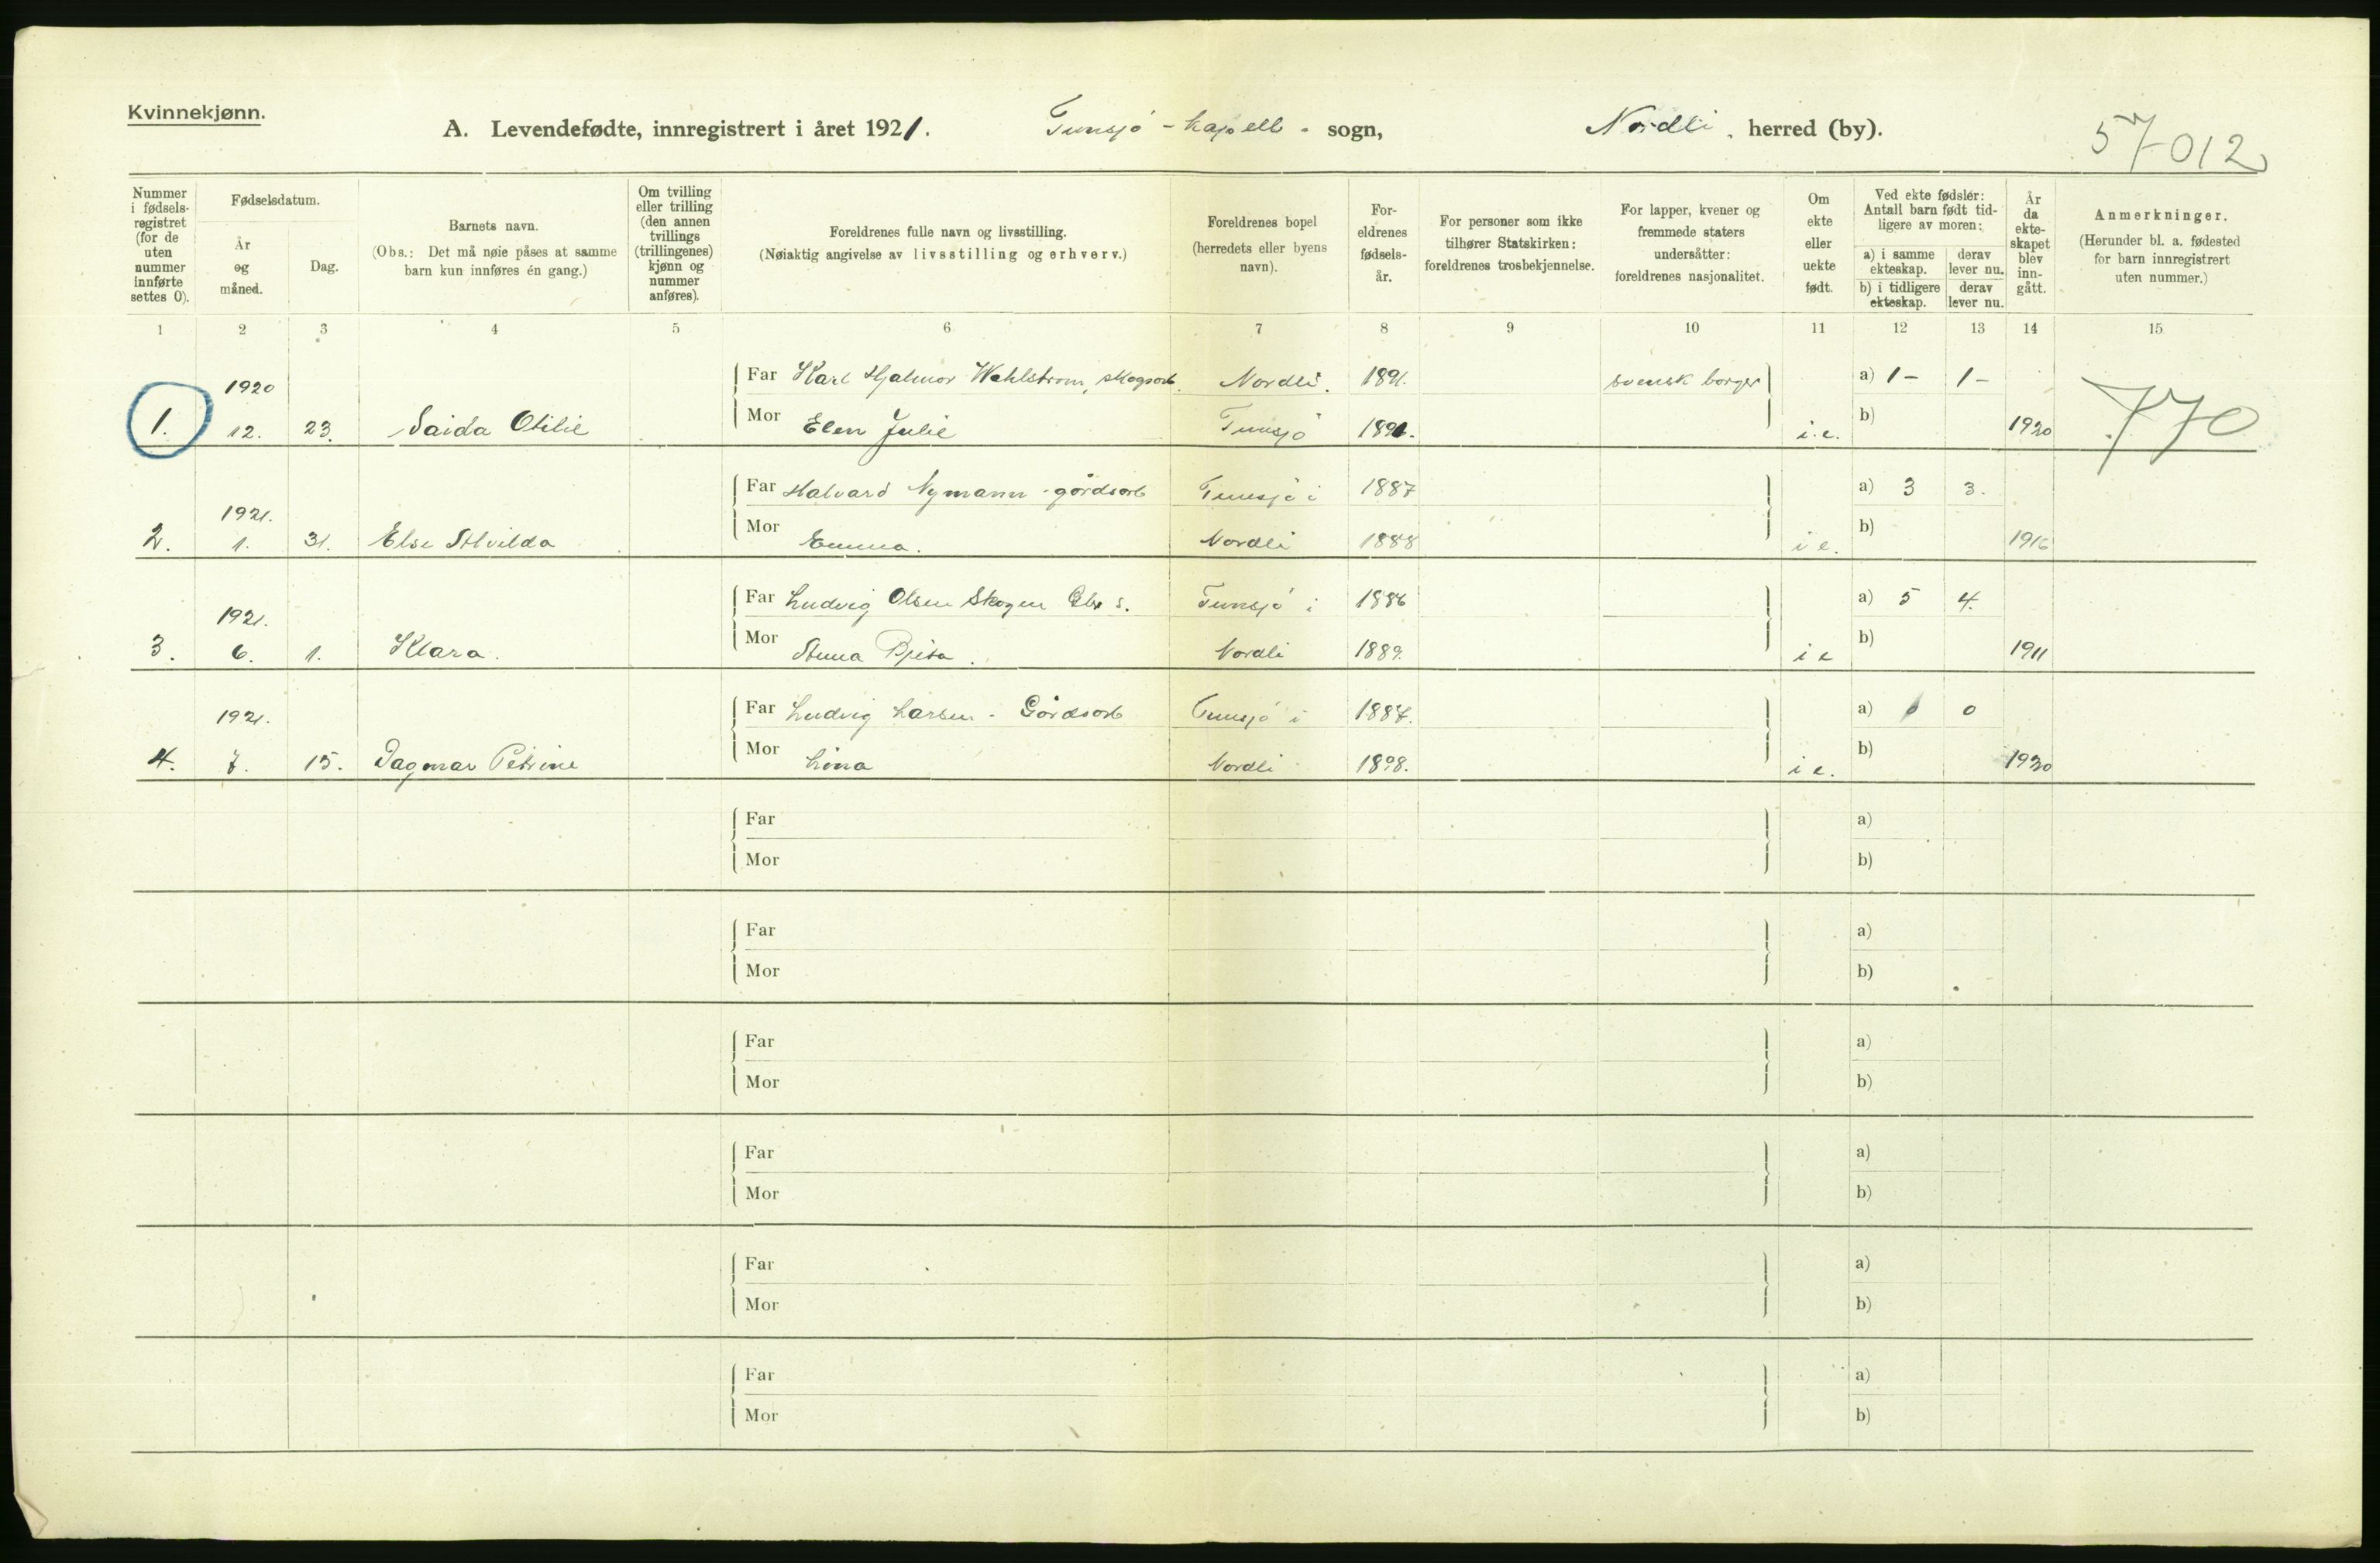 Kvinnekjønn.
A. Levendefødte, innregistrert i året 1921. Tunsjø - kapell - sogn, Nordli. herred (by).
57012
Nummer i fødsels-registret (for de uten nummer innførte settes 0).
Fødselsdatum.
År og måned.
Dag.
Barnets navn.
(Obs.: Det må nøie påses at samme barn kun innføres én gang.)
Om tvilling eller trilling (den annen tvillings (trillingenes) kjønn og nummer anføres).
Foreldrenes fulle navn og livsstilling.
(Nøiaktig angivelse av livsstilling og erhverv.)
Foreldrenes bopel (herredets eller byens navn).
For-eldrenes fødsels-år.
For personer som ikke tilhører Statskirken: foreldrenes trosbekjennelse.
For lapper, kvener og fremmede staters undersåtter: foreldrenes nasjonalitet.
Om ekte eller uekte født.
Ved ekte fødsler: Antall barn født tid-ligere av moren:
a) i samme ekteskap. derav lever nu.
b) i tidligere ekteskap. derav lever nu.
År da ekte-skapet blev inn-gått.
Anmerkninger.
(Herunder bl. a. fødested for barn innregistrert uten nummer.)
1 2 3 4 5 6 7 8 9 10 11 12 13 14 15
1920 Far Karl Hjalmar Wahlstrøm, skogsarb. Nordli. 1891. svensk borger a) 1 - 1 -
1. 12. 23. Saida Otilie Mor Elen Julie Tunsjø 1891. i.e. b) 1920 770
1921. Far Halvard Nymann - gårdsarb Tunsjø i 1887 a) 3 3.
2. 1. 31. Else Alvilda Mor Emma. Nordli 1888 i e. b) 1916
1921. Far Ludvig Olsen Skogen Gbr s. Tunsjø i 1886 a) 5 4.
3. 6. 1. Klara. Mor Anna Nordli 1889. i e b) 1911
1921. Far Ludvig Larsen - Gårdsarb Tunsjø i 1887. a) 0 0
4. 7. 15. Dagmar Petrine Mor Lina Nordli 1898. i e. b) 1920
Far a)
Mor b)
Far a)
Mor b)
Far a)
Mor b)
Far a)
Mor b)
Far a)
Mor b)
Far a)
Mor b)